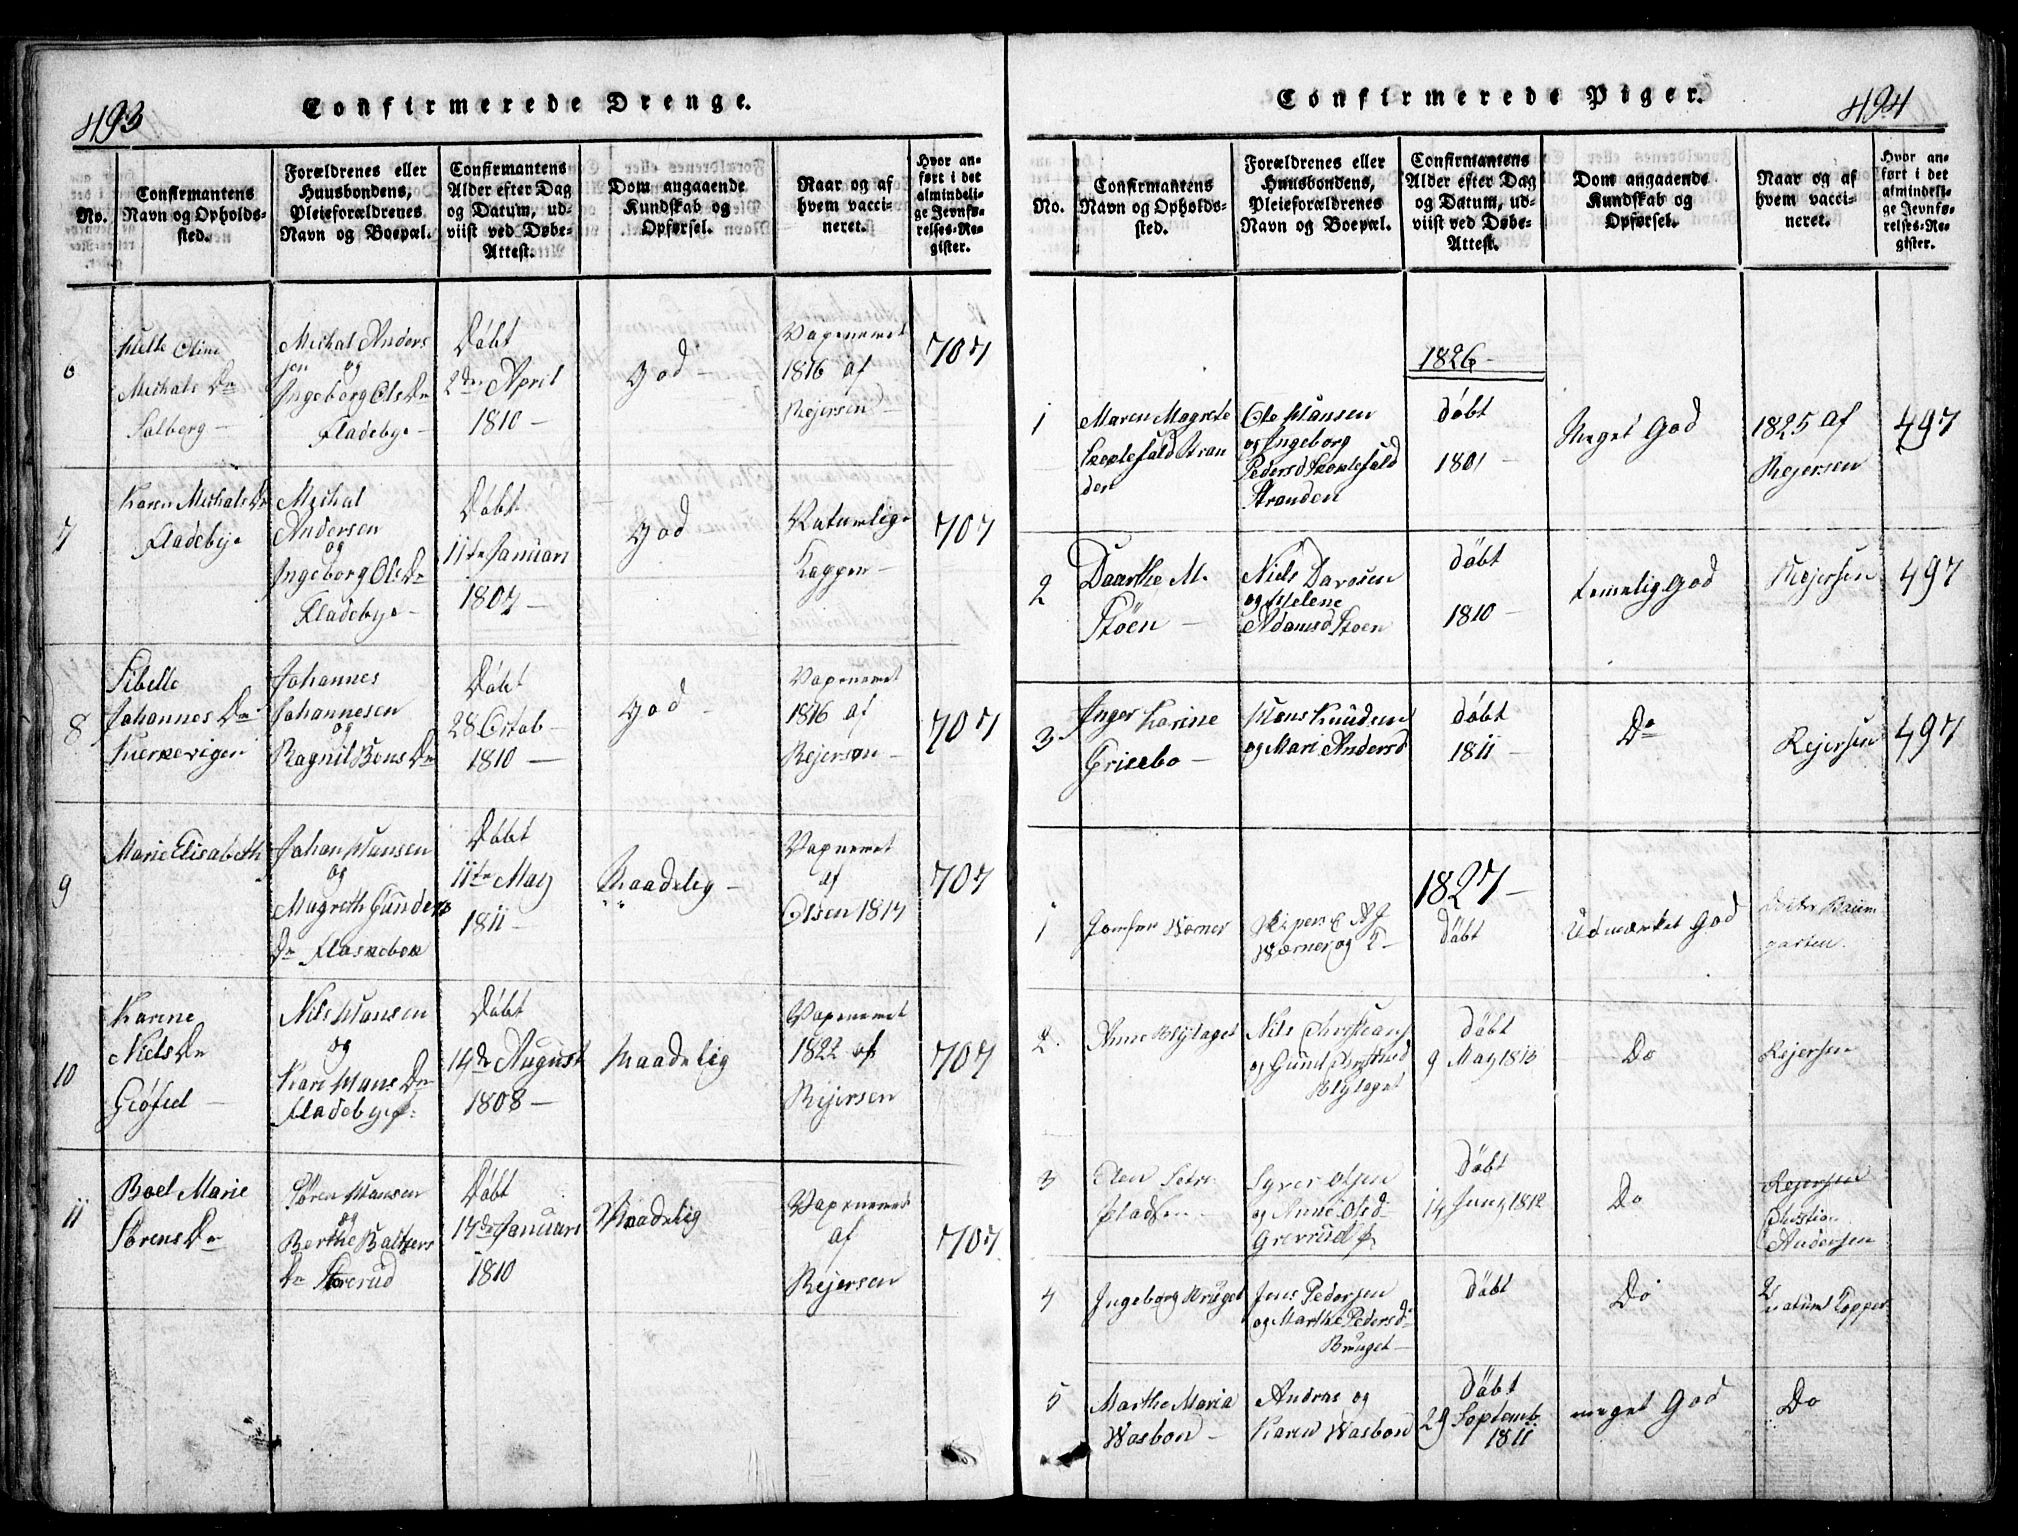 493
Confirmerede Drenge.
No.
Confirmantens
Navn og Opholds-
sted.
Forældrenes eller
Huusbondens,
Pleieforældrenes
Navn og Boepæl.
Confirmantens
Alder efter Dag
og Datum, ud-
viist ved Døbe-
Attest.
Dom angaaende
Kundskab og
Opførsel.
Naar og af
hvem vacci-
neret.
Hvor an-
ført i det
almindeli-
ge Jevnfø-
relses-Re-
gister.
6
Helle Oline
Michals Dr
Solberg
Michal Anders
sen og
Ingeborg Ols Dr
Fladebye
Døbt
2den April
1810
God
Vaxeneret
1816 af
Rejersen
707
7
Karen Michals Dr
Fladebye
Michal
Andersen
og
Ingeborg Ols Dr
Fladebye
Døbt
11te Januari
1807
God
Naturlige
Kopper
707
8
Sibelle
Johannes Dr
Kierkevigen
Johannes
Johannesen
og
Ragnil Bens Dr
Døbt
28 Octob
1810
God
Vaxeneret
1816 af
Rejersen
707
9
Marie Elisabeth
Johan Hansen
og
Magreth Gunders
Dr Flaskebek
Døbt
11te May
1811
Maadelig
Vaxneret
af
Olsen 1814
707
10
Karine
Niels Dr
Giøfiel
Nils Hansen
og
Kari Hans Dr
Fladebye
Døbt
14de August
1808
Maadelig
Vaxeneret
1822 af
Rejersen
707
11
Boel Marie
Sørens Dr
Søren Hansen
og
Berthe Baltzers
Dr Storerud
Døbt
14de Januari
1810
Maadelig
Vaxeneret
af
Rejersen
707
494
Confirmerede Piger.
No.
Confirmantens
Navn og Opholds-
sted.
Forældrenes eller
Huusbondens,
Pleieforældrenes
Navn og Boepæl.
Confirmantens
Alder efter Dag
og Datum, ud-
viist ved Døbe-
Attest.
Dom angaaende
Kundskab og
Opførsel.
Naar og af
hvem vacci-
neret.
Hvor an-
ført i det
almindeli-
ge Jevnfø-
relses-Re-
gister.
1826
1
Maren Magrete
Skoklefald Stran
den
Ole Hansen
og Ingeborg
Pedersd Skoklefald
Stranden
døbt
1801
Meget God
1825 af
Rejersen
497
2
Daarthe M.
Støen
Niels Davosen
og Helene
Adamsd Støen
døbt
1810
temelig God
Rejersen
497
3
Inger Karine
Grisebo
Hans Knudsen
og Mari Andersd
døbt
1811
Do
Rejersen
497
1827
1
Jomfru Werner
Werner og
døbt
Udmærket God
Docter Baum
garten
2
Anne Blylaget
Nils Christians
og Gund
Blylaget
døbt
9 May 1813
Do
Rejersen
3
Elen Sætre
Pladsen
Syver Olsen
og Anne Olsd
døbt
14 Juny 1812
Do
Rejersen
Christian
Andersen
4
Ingeborg Bruget
Jens Pedersen
og Marthe Pedersd
Bruget
døbt
Do
Naturl Copper
5
Marthe Maria
Wasbon
Andras og
Karen Wasbon
døbt
29 Septemb.
1811
meget God
Do